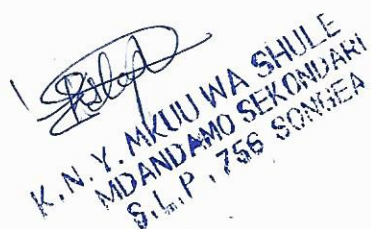 K.N.Y. MKUU WA SHULE
MDANDAMO SEKONDARI
S.L.P. 756 SONGEA